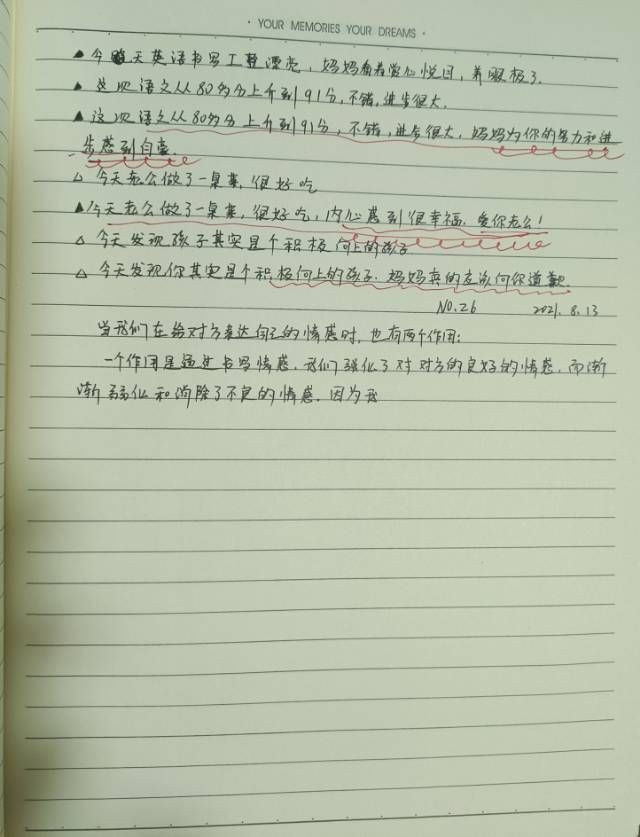 · YOUR MEMORIES YOUR DREAMS ·
▲今天英语书写工整漂亮，妈妈看着赏心悦目，养眼极了.
▲这次语文从80多分上升到91分,不错,进步很大.
▲这次语文从80多分上升到91分，不错，进步很大，妈妈为你的努力和进
步感到自豪.
△今天老公做了一桌菜,很好吃
▲今天老公做了一桌菜，很好吃，内心感到很幸福,爱你老公！
△今天发现孩子其实是个积极向上的孩子
△今天发现你其实是个积极向上的孩子.妈妈真的应该向你道歉.
NO.26 2021.8.13
当我们在给对方表达自己的情感时,也有两个作用:
一个作用是通过书写情感,我们强化了对对方的良好的情感,而渐
渐弱化和消除了不良的情感.因为我